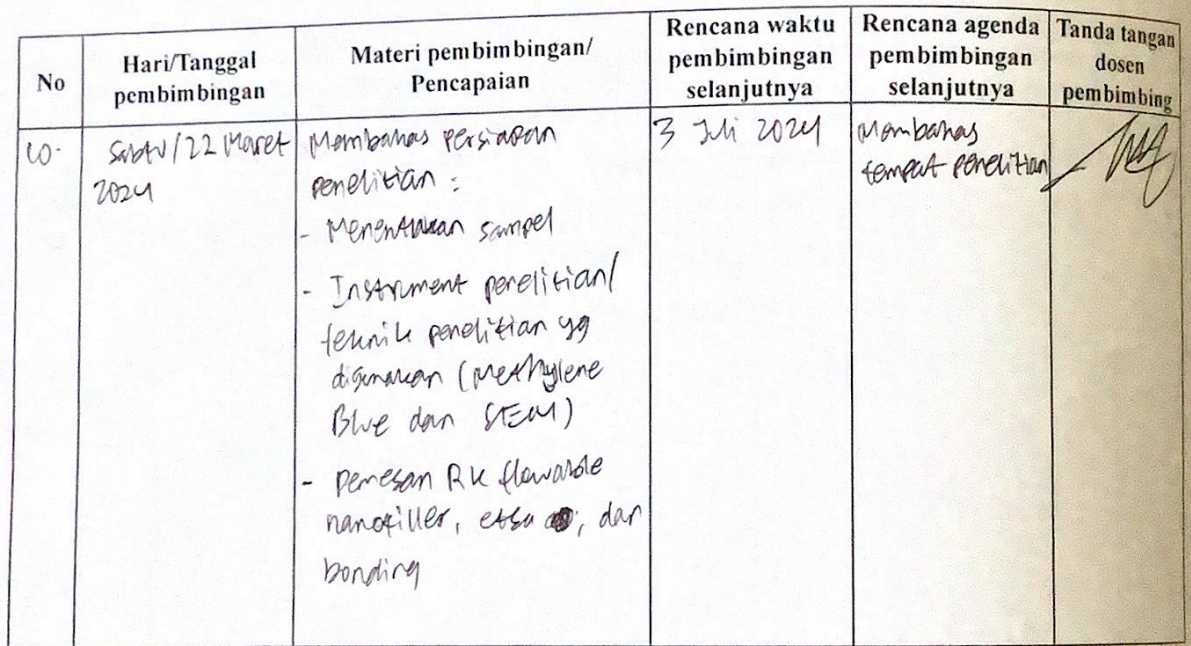 No
Hari/Tanggal
pembimbingan
Materi pembimbingan/
Pencapaian
Rencana waktu
pembimbingan
selanjutnya
Rencana agenda
pembimbingan
selanjutnya
Tanda tangan
dosen
pembimbing
10.
Sabtu/22 Maret
2024
Membahas persiapan
penelitian :
- Menentukan sampel
- Instrument penelitian/
teknik penelitian yg
digunakan (Methylene
Blue dan
- pemesan RK flowable
nanofiller, etsa, dan
bonding
3 Juli 2024
Membahas
tempat penelitian